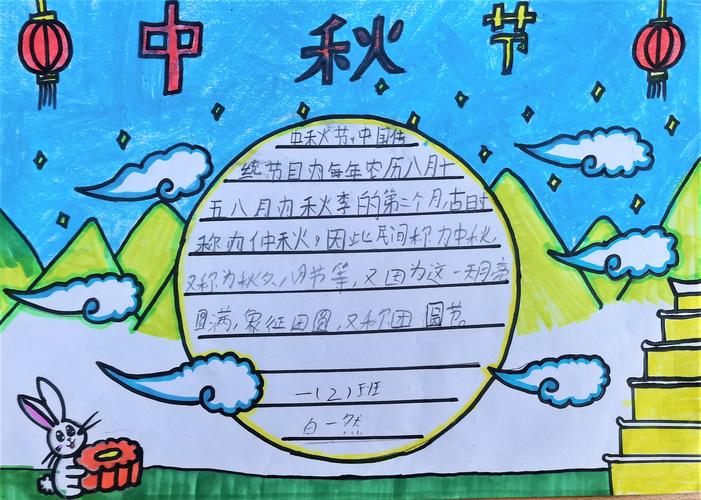 中秋节
中秋节，中国传
统节日为每年农历八月十
五八月为秋季的第二个月，古时
称为仲秋，因此民间称为中秋，
又称为秋夕、八月节等，又因为这一天月亮
圆满，象征团圆，又称团圆节。
一（2）班
白一然